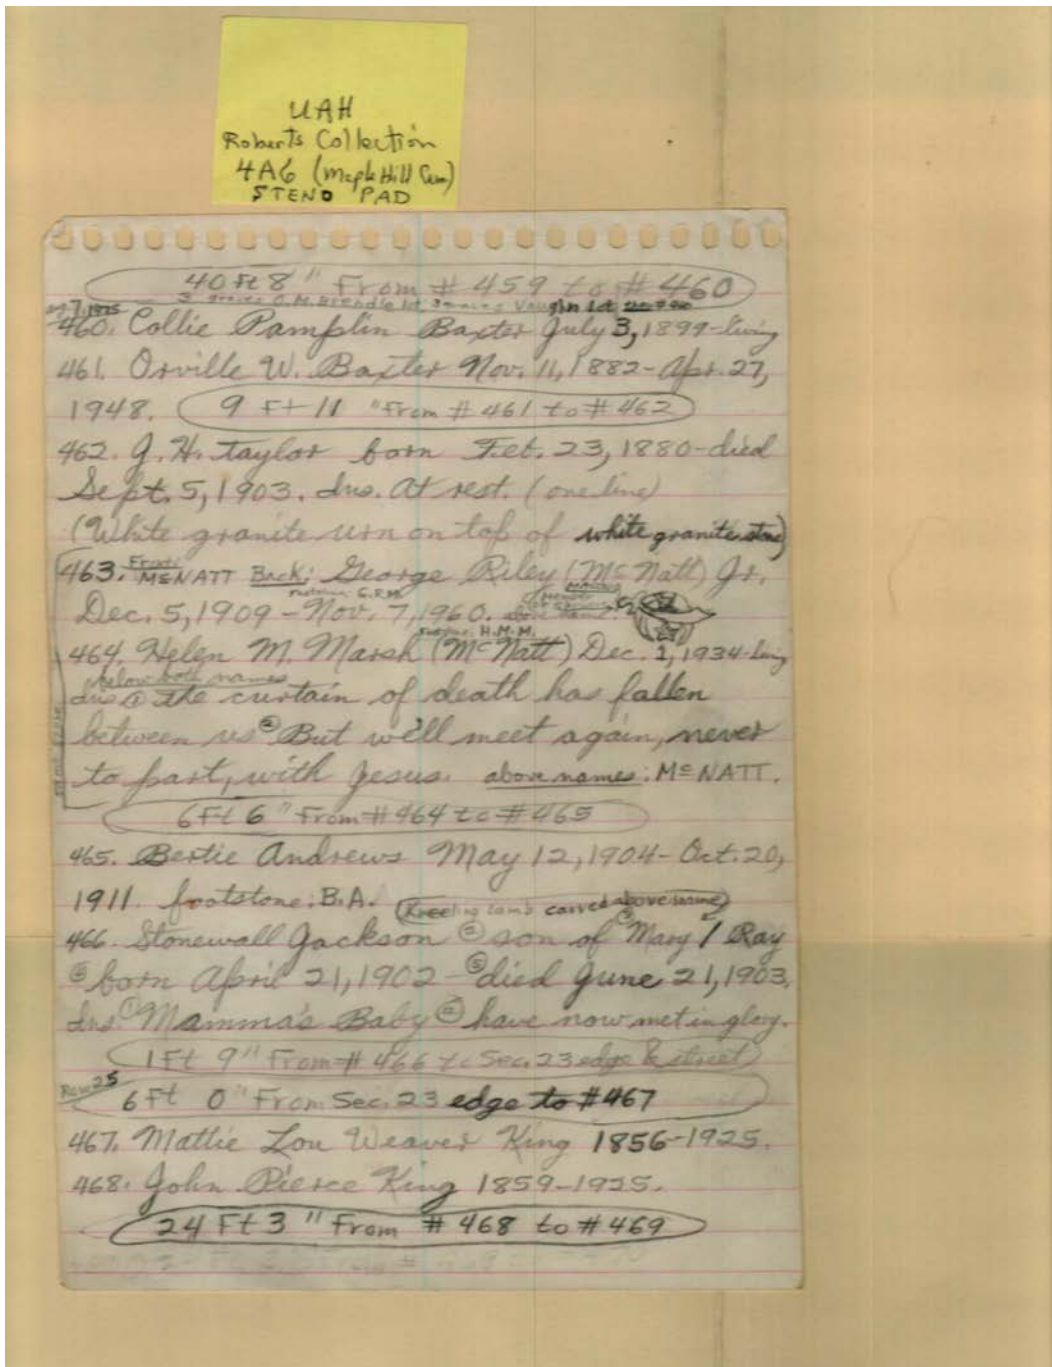 UAH
Roberts Collection
4A6 (Maple Hill Cem)
STENO PAD
40 Ft 8" From # 459 to # 460
3 graves O.M. Brendle lot 3 graves Vaughn lot
460. Collie Pamplin Baxter July 3, 1899-living
461. Orville W. Baxter Nov. 11, 1882- Apr. 27,
1948. 9 Ft 11 "From # 461 to # 462
462. J. H. Taylor born Feb. 23, 1880-died
Sept. 5, 1903. Ins. At rest. (one line)
(White granite urn on top of white granite stone)
463. Front: McNATT Back: George Riley (McNatt) Jr.
footstone: G.R.M.
Dec. 5, 1909 - Nov. 7, 1960. above name:
footstone: H.M.M.
464. Helen M. Marsh (McNatt) Dec. 1, 1934-living
below both names
Ins ① The curtain of death has fallen
between us ② But we'll meet again, never
to part, with Jesus. above names: McNATT.
6 Ft 6 " From # 464 to # 465
465. Bertie Andrews May 12, 1904- Oct. 20,
1911. footstone: B.A. (Kneeling lamb carved above name)
466. Stonewall Jackson ② son of ③ Mary / Ray
④ born April 21, 1902 - ⑤ died June 21, 1903.
Ins. ① Mamma's Baby ② have now met in glory.
1 Ft 9" From # 466 to Sec. 23 edge & street
Row 25
6 Ft 0 "From Sec. 23 edge to #467
467. Mattie Lou Weaver King 1856-1925.
468. John Pierce King 1859-1925.
24 Ft 3 " From # 468 to # 469